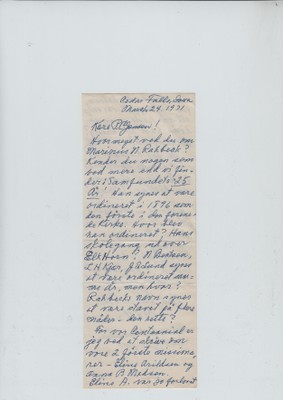 Cedar Falls, Iowa
March 24, 1971
Kære P.
Hvor meget ved du om
Marinus N Rahbeck?
Kender du nogen som
ved mere end vi fin-
der i Samfundets 25
År! Han synes at være
ordineret i 1896 som
den første i den forene-
de Kirke. Hvor blev
han ordineret? Hans
skolegang ud over
Elk Horn? N Bentsen,
L H Kjær, J G Lund synes
at være ordineret sam-
me år, men hvor?
Rahbecks navn synes
at være stavet på flere
måder - den rette?
For vor Centennial er
jeg ved at skrive om
vore 2 første missionæ-
rer - Eline Arildsen og
Jens P Madsen.
Eline A. var 30 forlovet